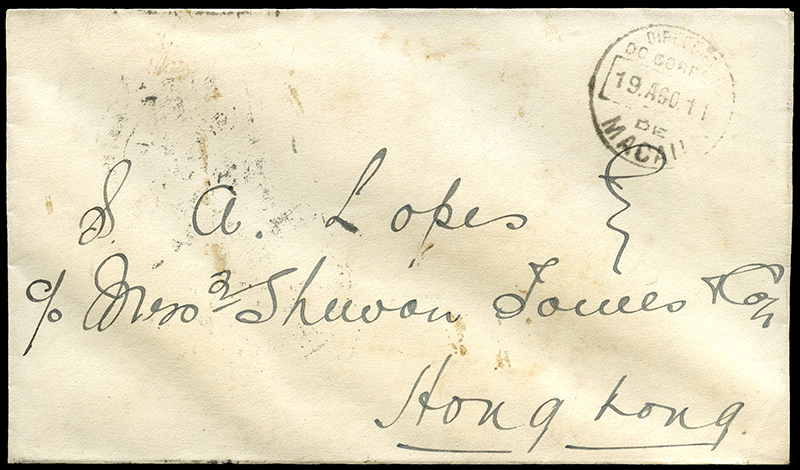 DO CORR
19. AGO 11
DE
MACAU
S. A. Lopes Esq
c/o Messrs Shewan Tomes & Co.,
Hong Kong.